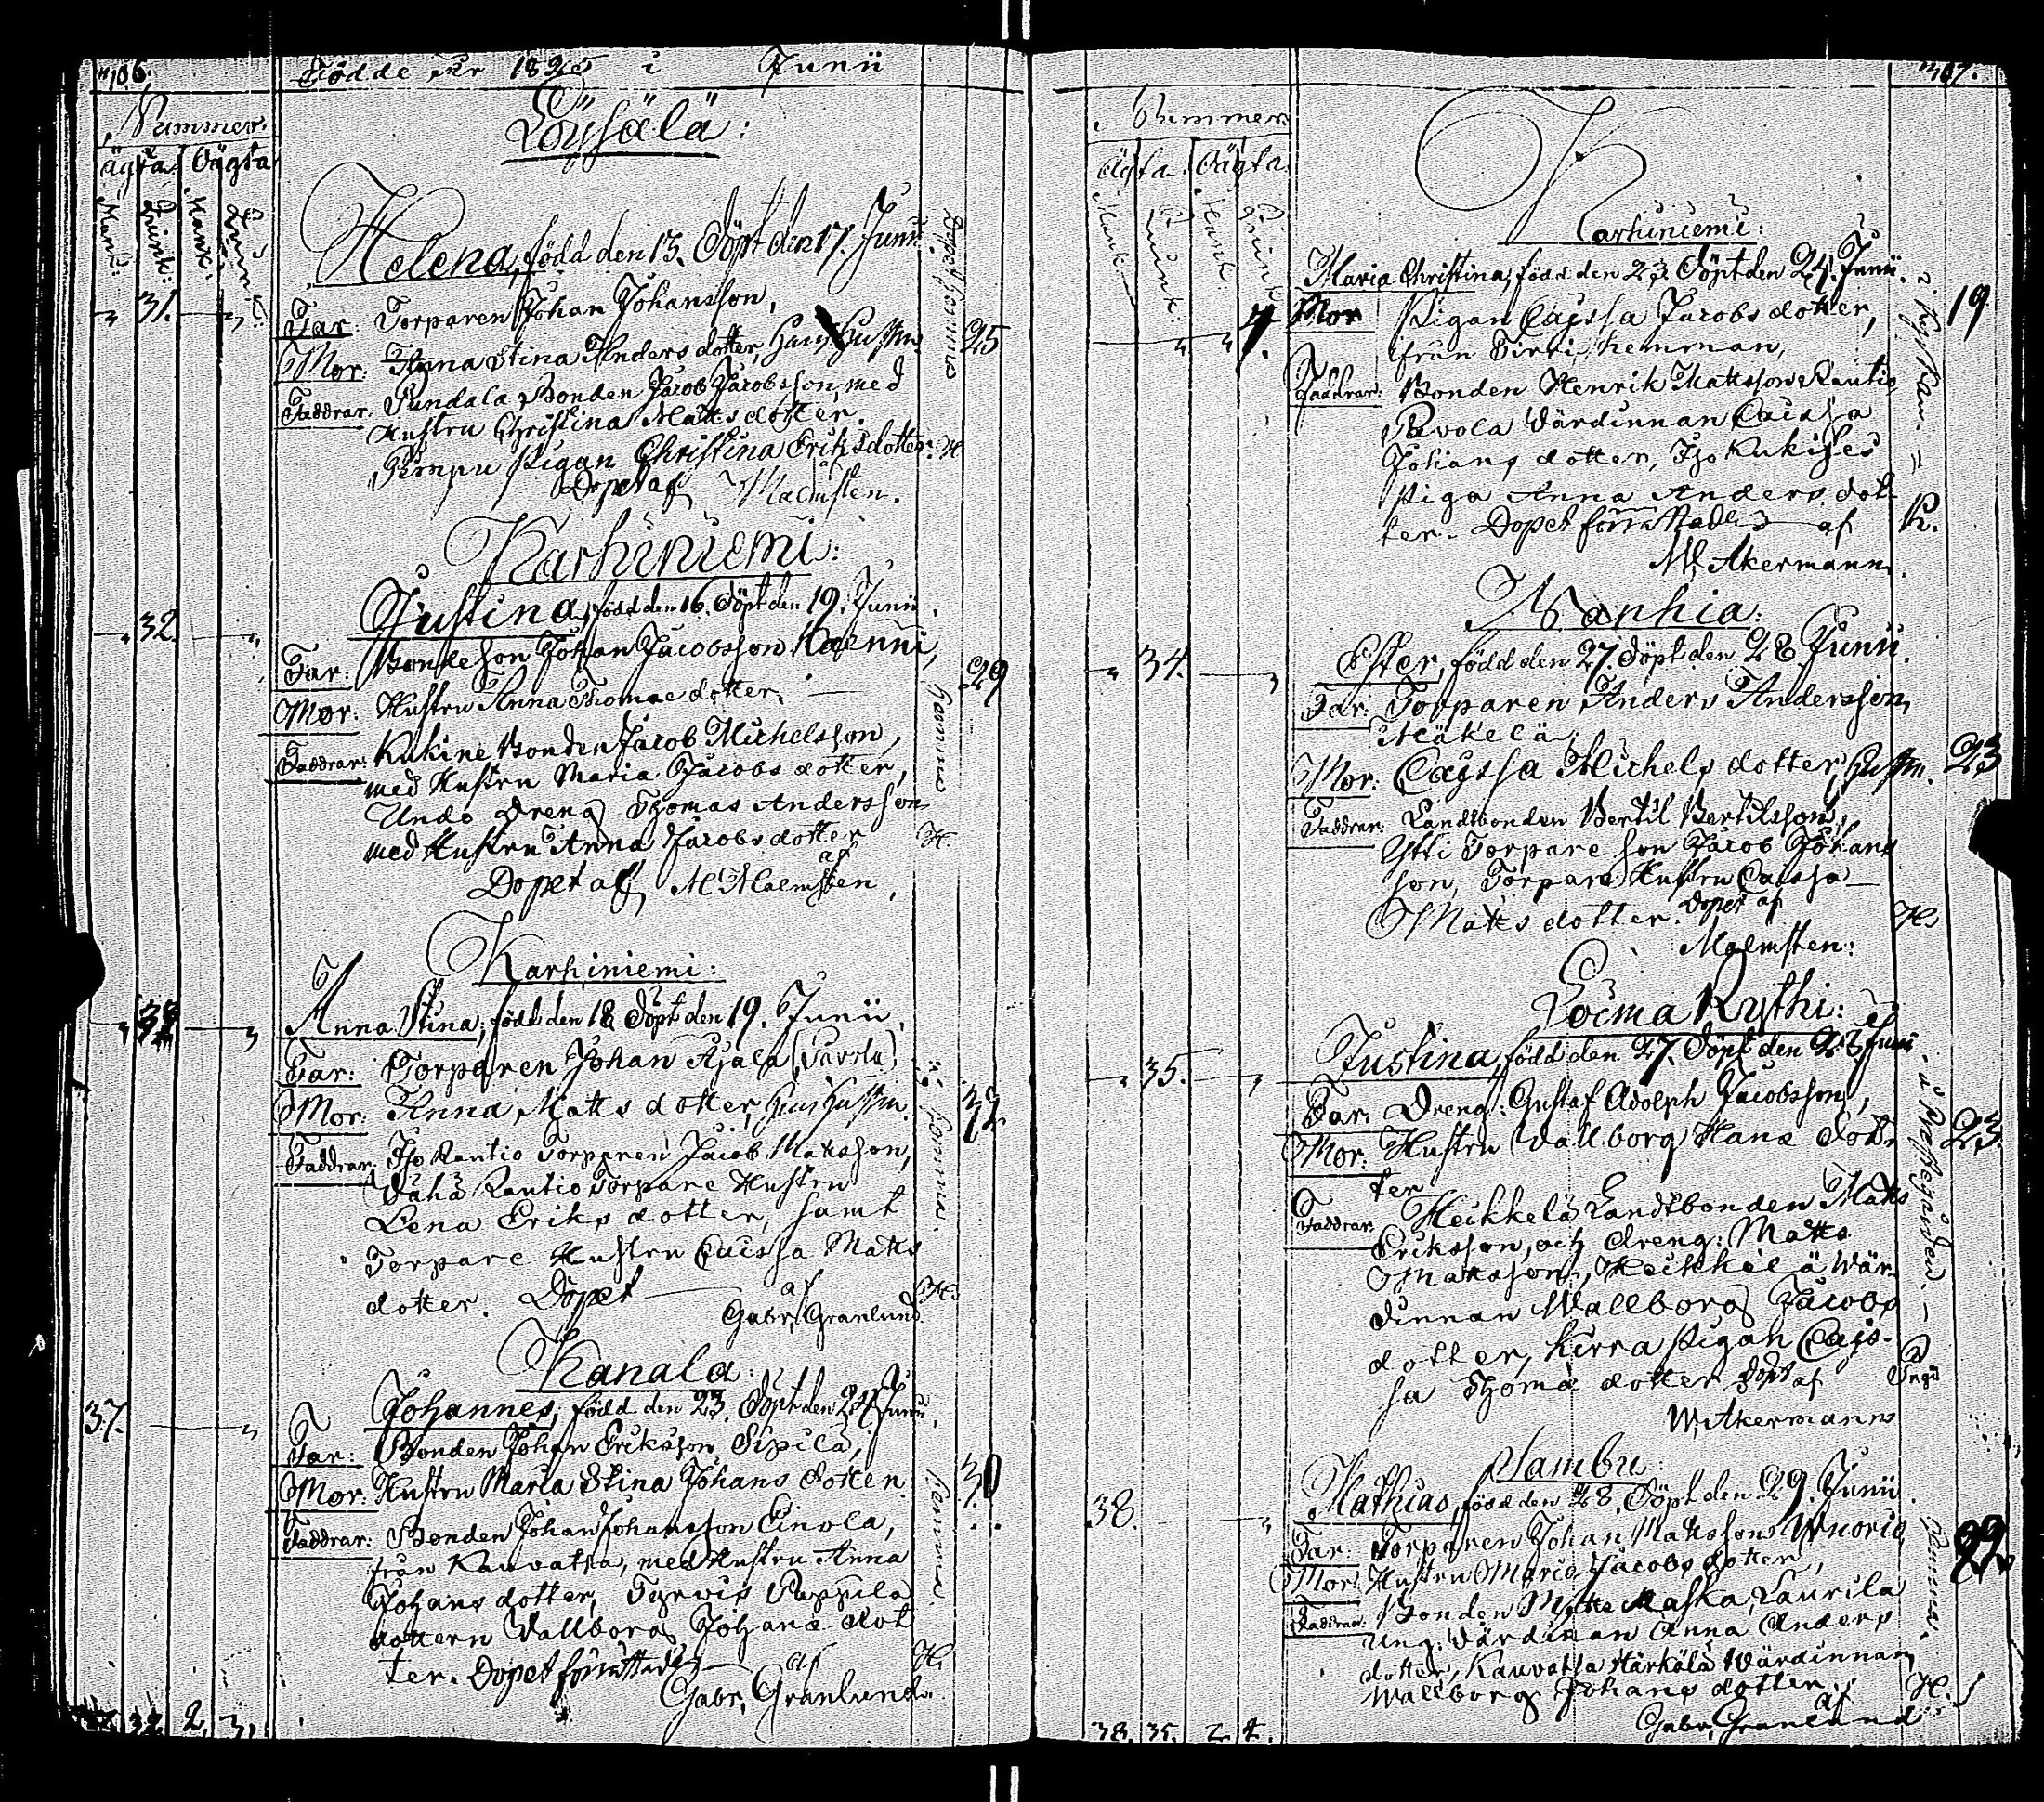 106.
Födde År 1825 i Junii
Nummer.
ägta. Oägta
Mank: Qvink: Mank: Qvink:
Löysälä:
Helena, född den 13. Döpt den 17. Junii.
31.
Far: Torparen Johan Johansson,
Mor: Anna Stina Anders dotter, hans Hustru.
25
Faddrar: Bonden Jacob Jacobsson, med
Hustru Christina Matts dotter.
Pigan Christina Eriks dotter. H
Dopet af Malmsten.
Karhiniemi:
Justina, född den 16. Döpt den 19. Junii.
32.
Far: Bondeson Johan Jacobsson
Mor: Hustru Anna Thomae dotter.
29
Faddrar: Kukine Bonden Jacob Michelsson,
med Hustru Maria Jacobs dotter,
Undo Dreng Thomas Andersson
med Hustru Anna Jacobs dotter H.
Dopet af M Malmsten,
Karhiniemi:
Anna Stina, född den 18 Döpt den 19. Junii.
33
Far: Torparen Johan Ajala (Pavola)
Mor: Anna Matts dotter, hans Hustru.
32
Faddrar: Iso Rantio Torparen Jacob Matsson,
Vähä Rantio Torpare Hustru
Lena Eriks dotter, samt
Torpare Hustru Caissa Matts
dotter. Dopet af
Gabr. Granlund
Kanala:
Johannes, född den 23. Döpt den 24 Junii.
37.
Far: Bonden Johan Eriksson Sipilä,
Mor: Hustru Maria Stina Johans dotter.
30
Faddrar: Bonden Johan Johansson Einola,
från Kauvatsa, med Hustru Anna
Johans dotter, Tyrvis Pappila
dottern Vallborg Johans dot
ter. Dopet förrättades af H.
Gabr. Granlund.
32 2. 3.
107.
Nummer
Ägta. Oägta.
Mank. Qvink. Mank. Qvink.
Karhiniemi:
Maria Christina, född den 23 Döpt den 24. Junii.
4.
Mor Pigan Cajssa Jacobs dotter,
från Pirri hemman,
19
Faddrar: Bonden Henrik Mattsson Rantio
Pavola Värdinnan Caissa
Johans dotter, Iso Kukises
piga Anna Anders dot
ter. Dopet förrättades af
W. Åkermann.
Wanhia:
Ester, född den 27. Döpt den 28 Junii.
34.
Far: Torparen Anders Andersson
Mäkelä,
Mor: Cajssa Michels dotter, Hustru.
23
Faddrar: Landtbonden Bertil Bertilsson,
Ytti Torpare son Jacob Johans
son, Torpare Hustru Caissa
Matts dotter. Dopet af
Malmsten:
Loima Kythi:
Justina, född den 27. Döpt den 28 Junii
35.
Far: Dreng: Gustaf Adolph Jacobsson,
Mor: Hustru Vallborg Hans dot
ter
23.
Faddrar: Heikkelä Landtbonden Matts
Eriksson, och dreng: Matts
Matsson, Heikkilä Wär
dinnan Wallborg Jacobs
dotter, Kirra pigan Cajs-
sa Thomae dotter. Döpt af
W. Åkermann
Sambu:
Mathias, född den 28. Döpt den 29. Junii.
38.
Far: Torparen Johan Matsson Wuorio
Mor: Hustru Maria Jacobs dotter,
22.
Faddrar: Bonden Matts Maska, Laurila
ung: Värdinan Anna Anders
dotter, Kauvatsa Härkälä Wärdinnan
Wallborg Johans dotter. H.
af
Gabr. Granlund
38. 35. 2. 4.